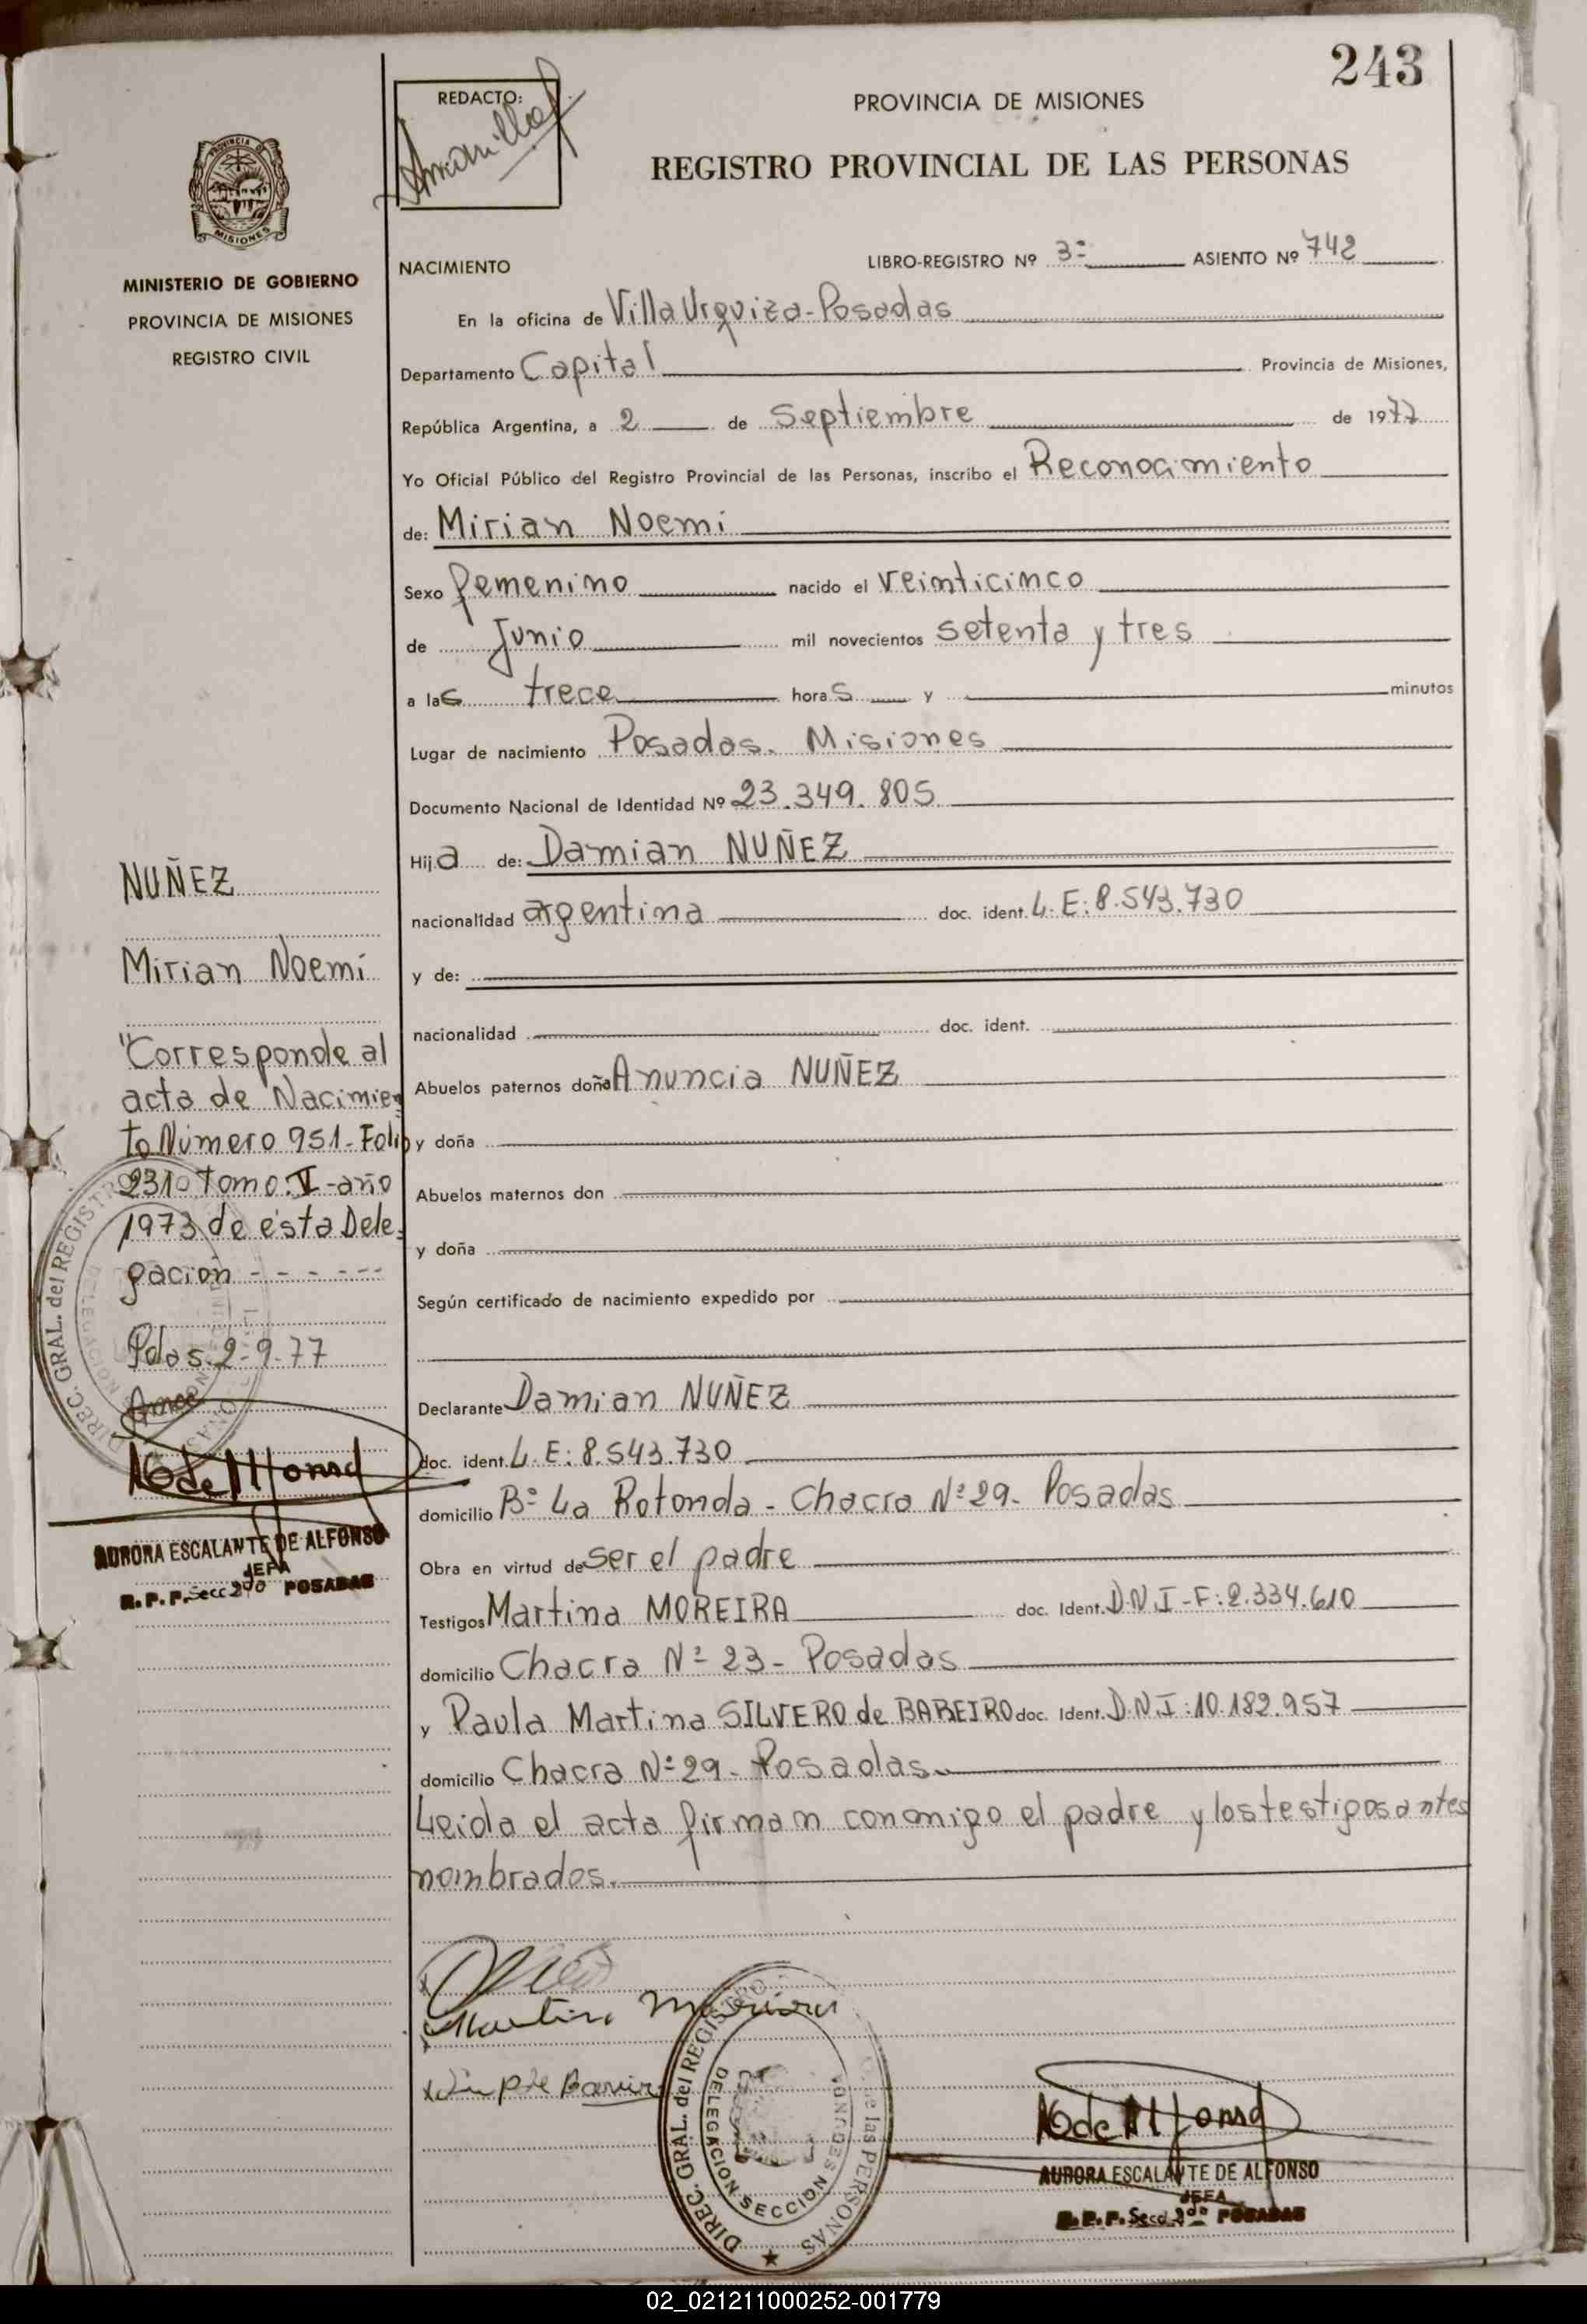 243
REDACTO:
PROVINCIA DE MISIONES
REGISTRO PROVINCIAL DE LAS PERSONAS
PROVINCIA DE
MISIONES
MINISTERIO DE GOBIERNO
PROVINCIA DE MISIONES
REGISTRO CIVIL
NACIMIENTO
LIBRO-REGISTRO Nº 3º ASIENTO Nº 742
En la oficina de Villa Urquiza-Posadas
Departamento Capital Provincia de Misiones,
República Argentina, a 2 de Septiembre de 1977
Yo Oficial Público del Registro Provincial de las Personas, inscribo el Reconocimiento
de: Mirian Noemi
Sexo femenino nacido el veinticinco
de Junio mil novecientos setenta y tres
a las trece horas y minutos
Lugar de nacimiento Posadas. Misiones
Documento Nacional de Identidad Nº 23.349.805
Hija de: Damian NUÑEZ
nacionalidad argentina doc. ident. L.E: 8.543.730
y de:
nacionalidad doc. ident.
Abuelos paternos doña Anuncia NUÑEZ
y doña
Abuelos maternos don
y doña
Según certificado de nacimiento expedido por
Declarante Damian NUÑEZ
doc. ident. L.E: 8.543.730
domicilio Bº La Rotonda - Chacra Nº 29- Posadas
Obra en virtud de ser el padre
Testigos Martina MOREIRA doc. Ident. D.N.I-F: 2.334.610
domicilio Chacra Nº 23- Posadas
y Paula Martina SILVERO de BAREIRO doc. Ident. D.N.I: 10.182.957
domicilio Chacra Nº 29- Posadas
Leida el acta firman conmigo el padre y los testigos antes
nombrados.
NUÑEZ
Mirian Noemí
"Corresponde al
acta de Nacimien
to Número 951-Folio
231 Tomo: V-año
1973 de ésta Dele-
gación - - - - - -
Pdas. 2-9-77
DIREC. GRAL. del REGISTRO
AURORA ESCALANTE DE ALFONSO
JEFA
R.P.P. Secc 2da POSADAS
Martina Moreira
DIREC. GRAL. del REGISTRO de las PERSONAS
DELEGACION SECCION SEGUNDA
AURORA ESCALANTE DE ALFONSO
JEFA
R.P.P. Secc. 2da POSADAS
02_021211000252-001779